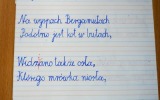 Na wyspach Bergamutach
Podobno jest kot w butach,
Widziano także osła,
Którego mrówka niosła,